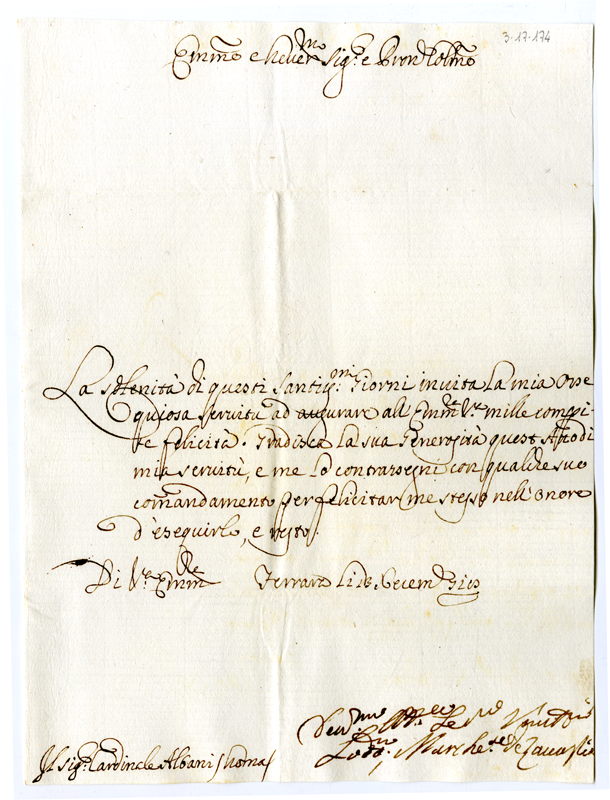 3-17-174
Emmo e Reuermo Sig.e e Pron Colmo
La Solenità di questi Santissmi Giorni inuita La mia Osse
quiosa seruitù ad augurare all' Emza Vra mille compi
te felicità. Gradisca La sua Generosità quest' Atto di
mia seruitù, e me Lo contrasegni con qualche suo
comandamento per felicitar me stesso nell' onore
d'eseguirlo, e resto.
Di Va Emza Ferrara Li 18. Decem
Deuotmo serure
Marchese
Il Sig.e Cardinale Albani / Roma /